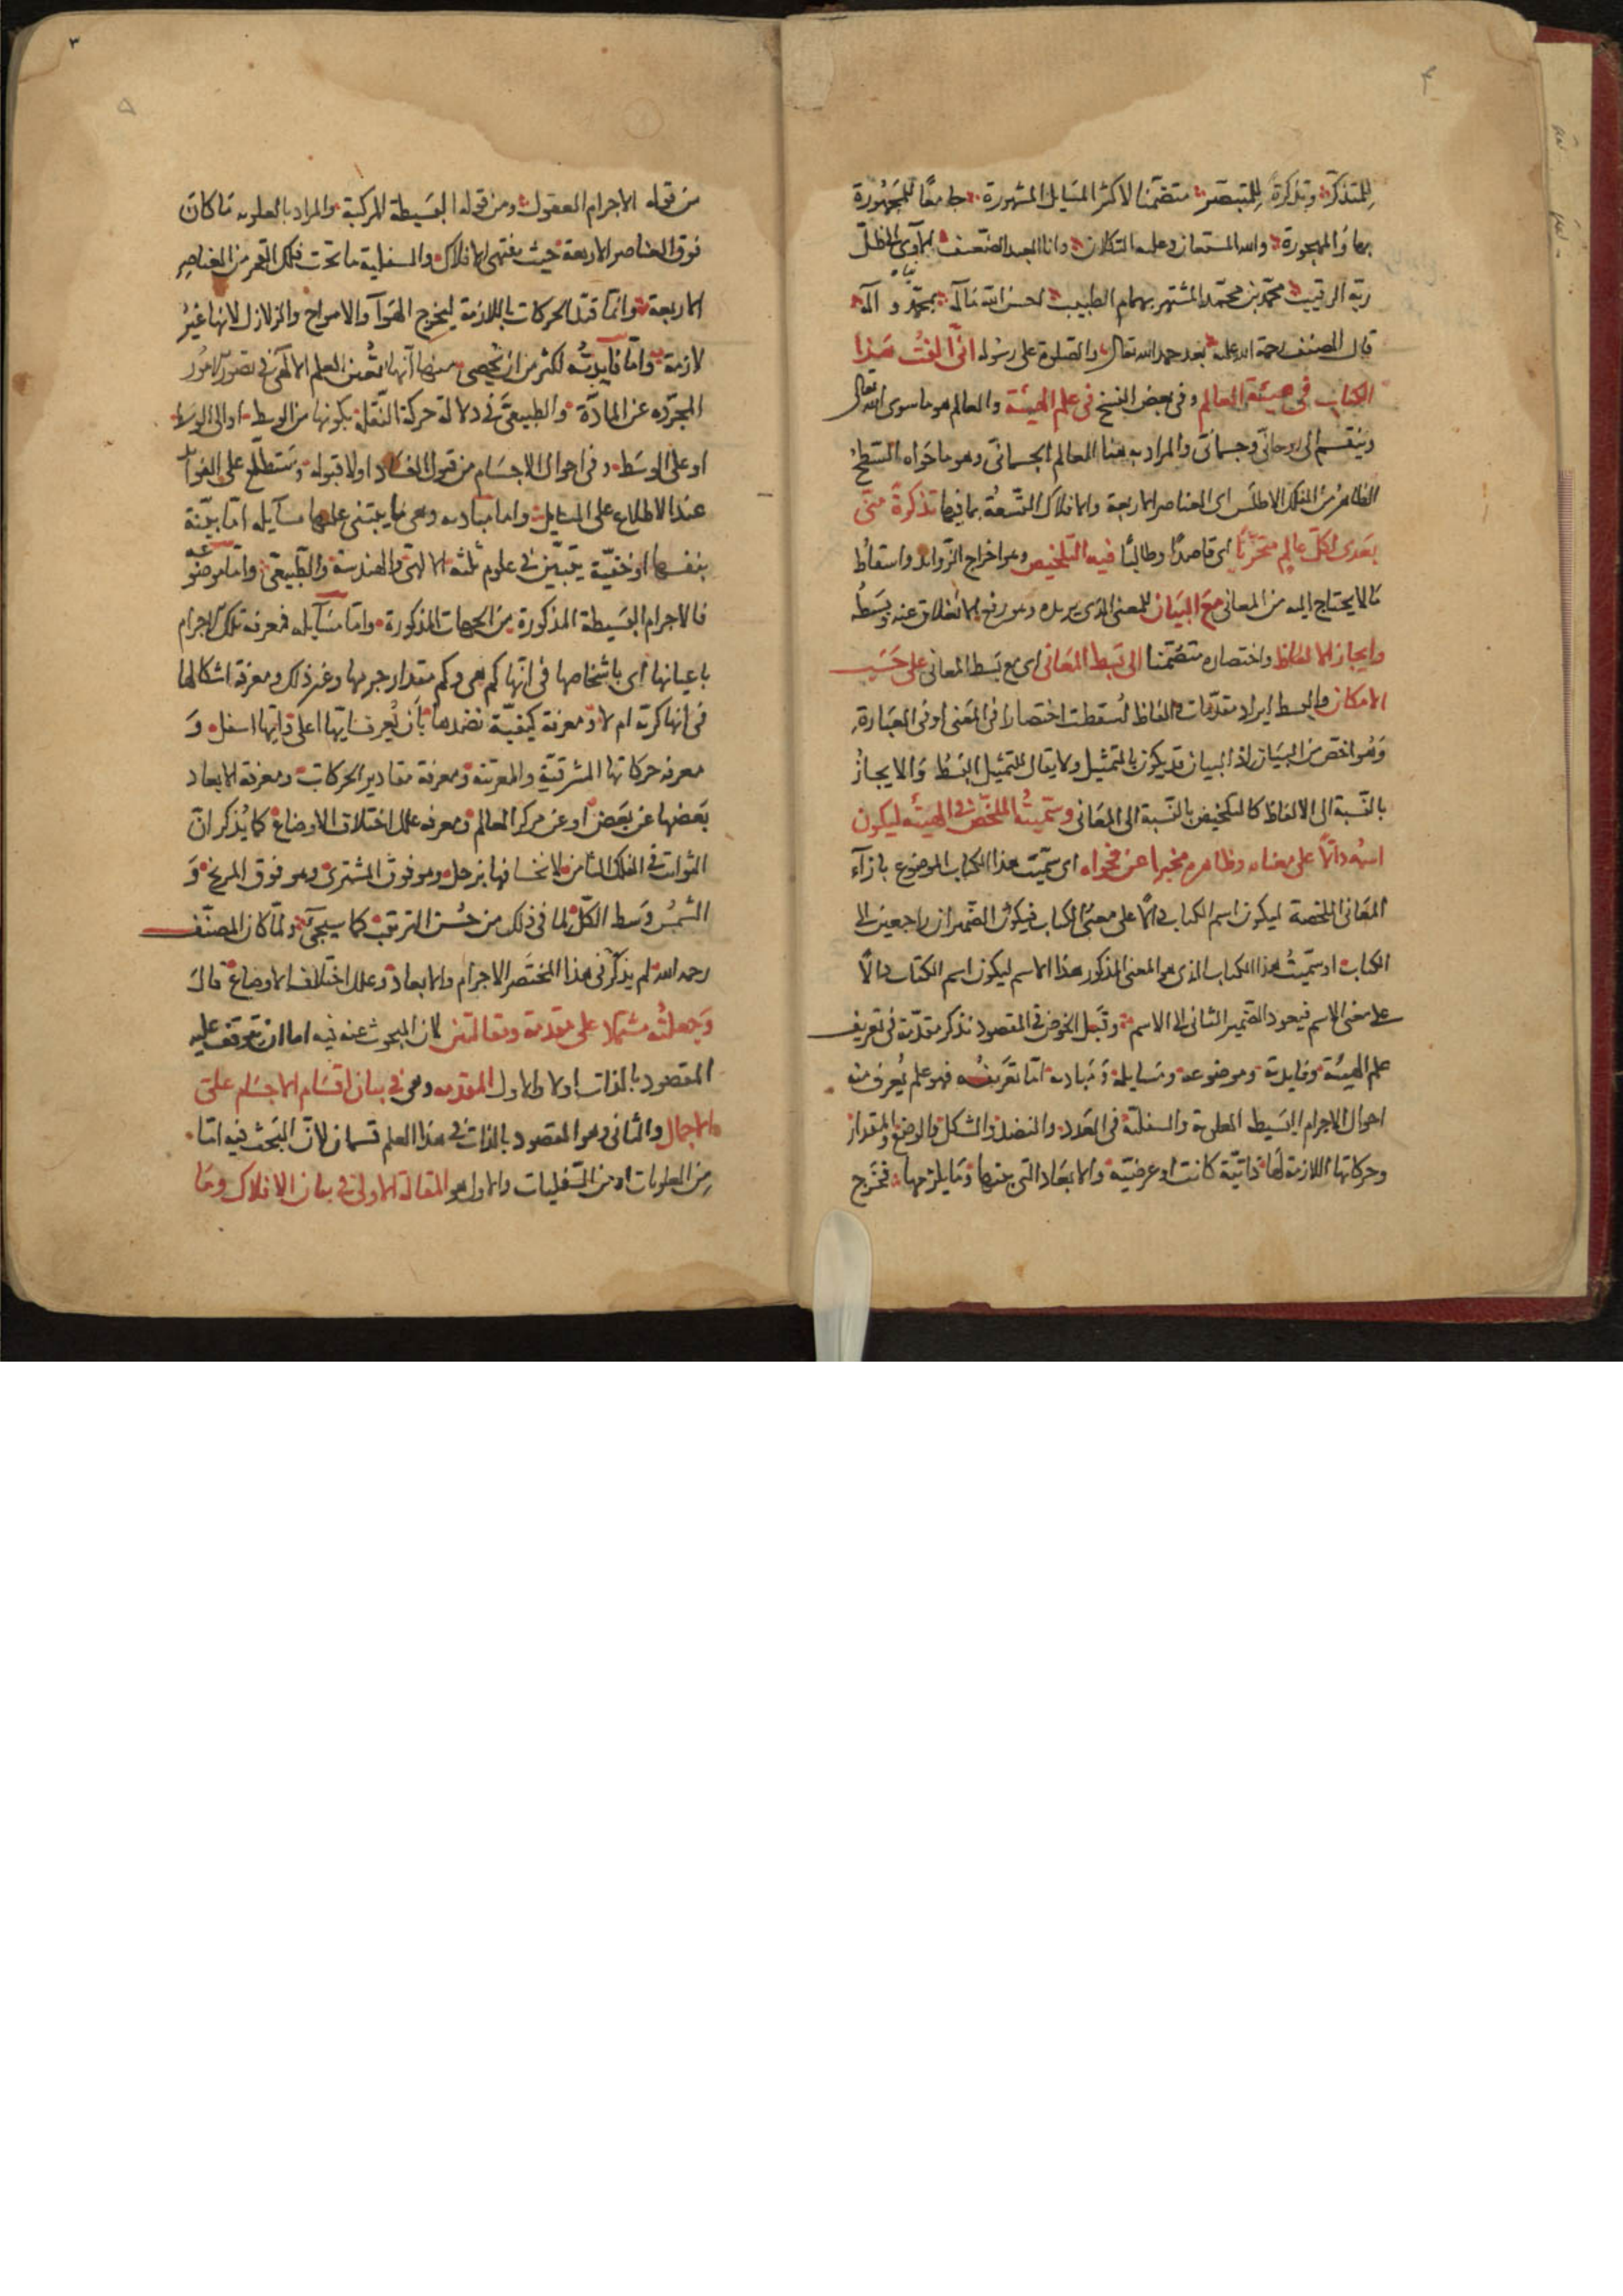 للمتذكر وتذكرة للمتبصر متضمنا لاكثر المسايل المشهورة جامعا للمجهورة
بها والمهجورة والله المستعان وعليه التكلان وانا العبد الضعيف الآوى الى ظل
ربه الرقيب محمد بن محمد المشتهر بهمام الطبيب احسن الله مآله بمحمد وآله
قال المصنف رحمة الله عليه بعد حمد الله تعالى والصلوة على رسوله انى الفت هذا
الكتاب فى هيئة العالم وفى بعض النسخ فى علم الهيئة والعالم هو ما سوى الله تعالى
وينقسم الى روحانى وجسمانى والمراد به هنا العالم الجسمانى وهو ما حواه السطح
الظاهر من الفلك الاطلس اى العناصر الاربعة والافلاك التسعة بما فيها تذكرة منى
بعدى لكل عالم متحريا اى قاصدا وطالبا فيه التلخيص وهو اخراج الزوايد واسقاط
ما لا يحتاج اليه من المعانى مع البيان للمعنى الذى يريده وهو رفع الانغلاق عنه وبسطه
وايجاز الالفاظ واختصاره متضمنا الى بسط المعانى اى مع بسط المعانى على حسب
الامكان والبسط ايراد مقدمات والفاظ اسقطت اختصارا فى المعنى او فى العبارة
وهو اخص من البيان اذ البيان قد يكون بالتمثيل ولا يقال للتمثيل البسط والايجاز
بالنسبة الى الالفاظ كالتلخيص بالنسبة الى المعانى وسميته الملخص فى الهيئة ليكون
اسمه دالا على معناه وظاهره مخبرا عن فحواه اى سميت هذا الكتاب الموضوع بازآء
المعانى الملخصة ليكون اسم الكتاب دالا على معنى الكتاب فيكون الضميران راجعين الى
الكتاب او سميت هذا الكتاب الذى هو المعنى المذكور هذا الاسم ليكون اسم الكتاب دالا
على معنى الاسم فيعود الضمير الثانى الى الاسم وقبل الخوض فى المقصود نذكر مقدمة فى تعريف
علم الهيئة وفايدته وموضوعه ومسايله ومباديه اما تعريفه فهو علم يعرف منه
احوال الاجرام البسيطة العلوية والسفلية فى العدد والنضد والشكل والوضع والمقدار
وحركاتها اللازمة لها ذاتية كانت او عرضية والابعاد التى بينها وما يلزمها فخرج
من قوله الاجرام العقول ومن قوله البسيطة المركبة والمراد بالعلوية ما كان
فوق العناصر الاربعة حيث ينتهى الافلاك والسفلية ما تحت فلك القمر من العناصر
الاربعة وانما قيد الحركات باللازمة ليخرج الهوآ والامواج والزلازل لانها غير
لازمة واما فايدته لكثر من ان يحصى منها انها تعين العلم الالهى فى تصور الامور
المجردة عن المادة والطبيعى فى دلالة حركة النقلة بكونها من الوسط او الى الوسط
او على الوسط وفى احوال الاجسام من قبول الفساد او لا قبوله وستطلع على الفوايد
عند الاطلاع على المسايل واما مباديه وهى ما يبتنى عليها مسايله اما بينة
بنفسها او خفية يتبين فى علوم ثلثة الالهى والهندسة والطبيعى واما موضوعه
فالاجرام البسيطة المذكورة من الجهات المذكورة واما مسايله فمعرفة تلك الاجرام
باعيانها اى باشخاصها فى انها كم هى وكم مقدار جرمها وغير ذلك ومعرفة اشكالها
فى انها كرية ام لا ومعرفة كيفية نضدها بان يعرف ايها اعلى وايها اسفل و
معرفة حركاتها المشرقية والمغربية ومعرفة مقادير الحركات ومعرفة الابعاد
بعضها عن بعض او عن مركز العالم ومعرفة علل اختلاف الاوضاع كما يذكر ان
الثوابت فى الفلك الثامن لانخسافها بزحل وهو فوق المشترى وهو فوق المريخ و
الشمس وسط الكل لما فى ذلك من حسن الترتيب كما سيجئ ولما كان المصنف
رحمه الله لم يذكر فى هذا المختصر الاجرام والابعاد وعلل اختلاف الاوضاع قال
وجعلته مشتملا على مقدمة ومقالتين لان المبحوث عنه فيه اما ان يتوقف عليه
المقصود بالذات اولا والاول المقدمه وهى فى بيان اقسام الاجسام على
الاجمال والثانى وهو المقصود بالذات فى هذا العلم قسمان لان البحث فيه اما
من العلويات او من السفليات والاول هو المقالة الاولى فى بيان الافلاك وما